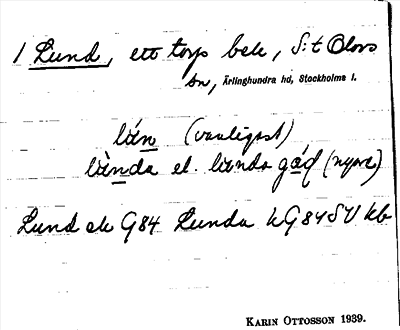 1 Lund, ett torp bel., S:t Olovs
sn, Ärlinghundra hd, Stockholms l.
lún (vanligast)
lùnda el. lunda gá̄d (nyare)
Lund ek G84 Lunda hG84SV kb
KARIN OTTOSSON 1939.